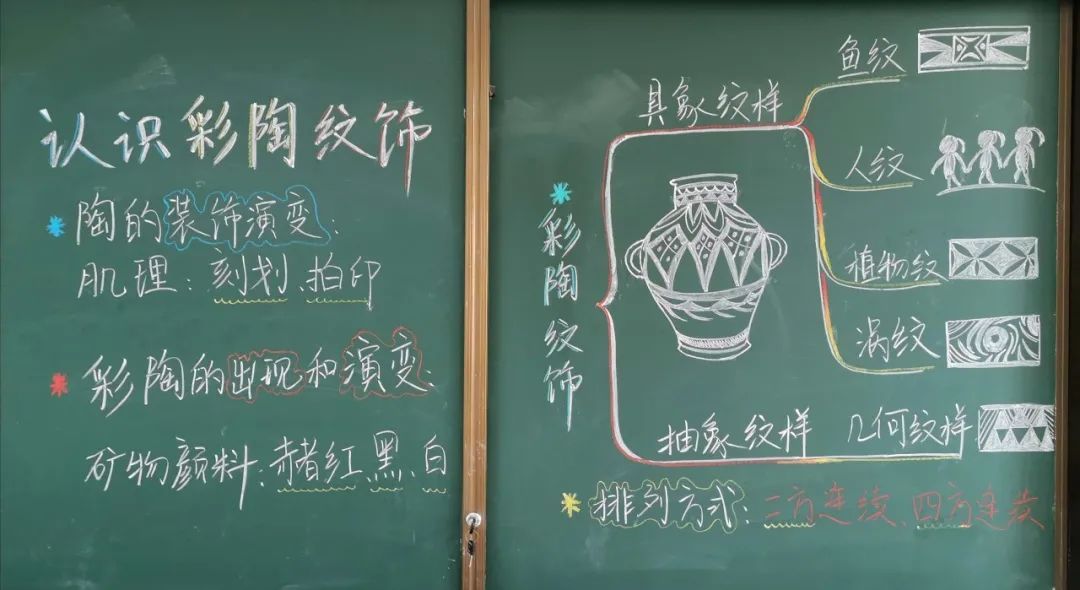 认识彩陶纹饰
陶的装饰演变:
肌理:刻划、拍印
彩陶的出现和演变:
矿物颜料:赭红、黑、白
彩陶纹饰
具象纹样
鱼纹
人纹
植物纹
涡纹
抽象纹样
几何纹样
排列方式:二方连续、四方连续